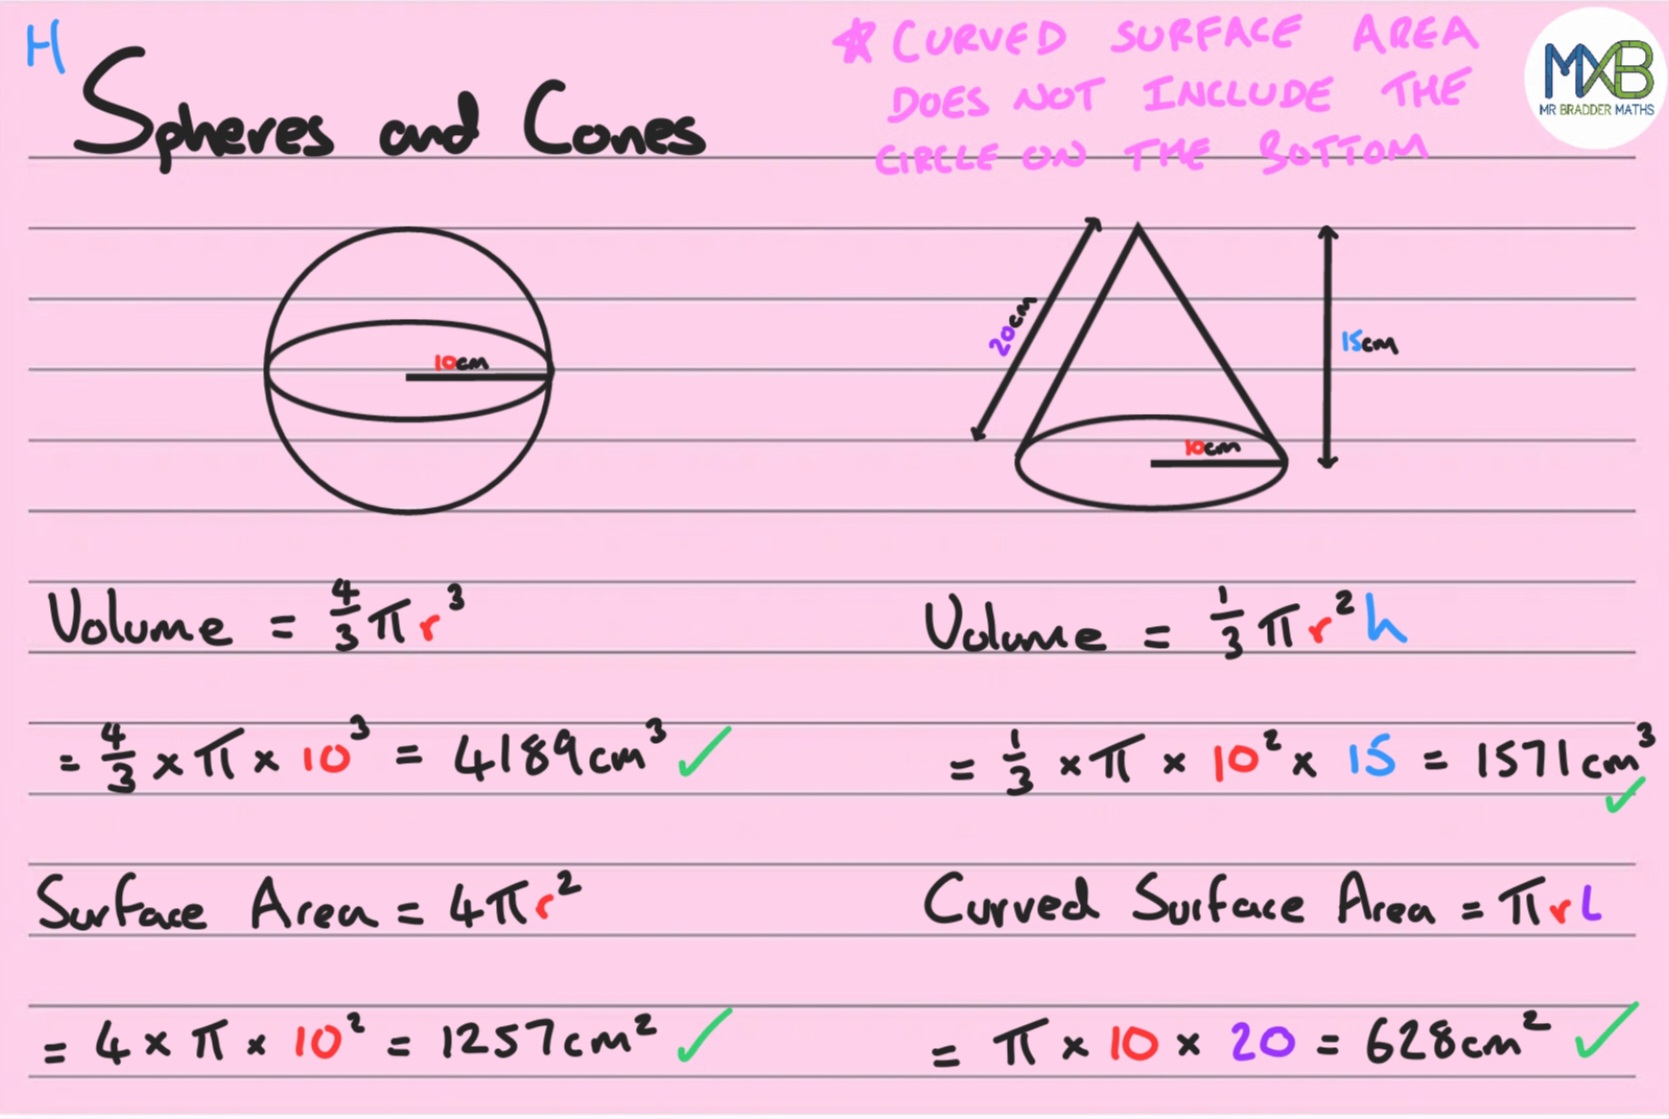 H
Spheres and Cones
* CURVED SURFACE AREA
DOES NOT INCLUDE THE
CIRCLE ON THE BOTTOM
MXB
MR BRADDER MATHS
10cm
20cm
15cm
10cm
Volume = 4/3 πr³
= 4/3 × π × 10³ = 4189cm³ ✓
Surface Area = 4πr²
= 4 × π × 10² = 1257cm² ✓
Volume = 1/3 πr²h
= 1/3 × π × 10² × 15 = 1571cm³ ✓
Curved Surface Area = πrL
= π × 10 × 20 = 628cm² ✓